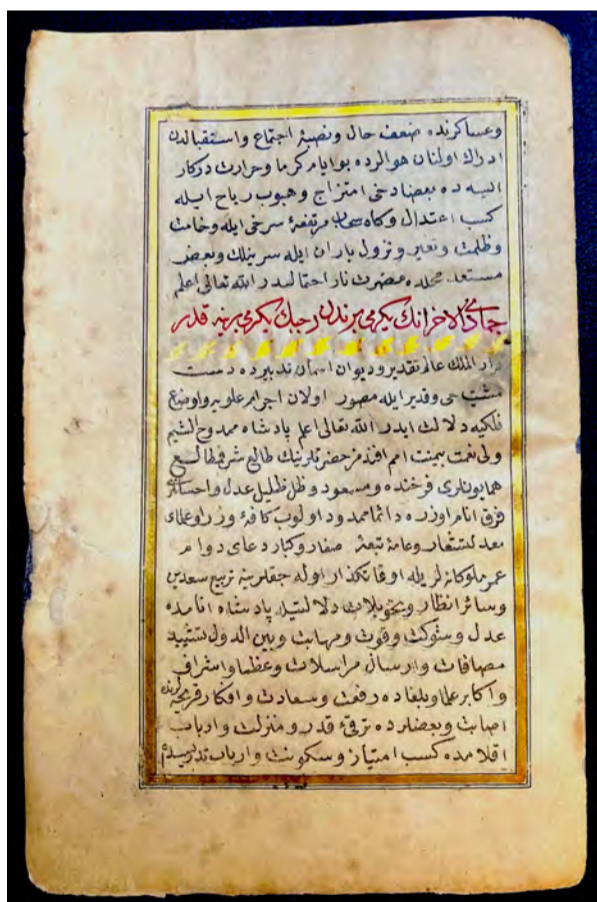 وعساكرنده ضعف حال ونصبهٔ اجتماع واستقبالدن
ادراك اولنان هوالرده بو ايام كرما وحرارت دركار
ايسه ده بعضا دخى امتزاج وهبوب رياح ايله
كسب اعتدال وكاه سحاب مرتفعهٔ سرخى ايله وخامت
وظلمت وتغير ونزول باران ايله سرينلك وبعض
مستعد محلده مضرت نار احتماليدر الله تعالى اعلم
جماذى الاخرانك يكرمى برندن رجبك يكرمى برينه قدر
دار الملك عالم تقدير وديوان اسمان تدبيرده دست
حى وقدير ايله مصور اولان اجرام علويه واوضاع
فلكيه دلالت ايدر الله تعالى اعلم پادشاه ممدوح الشيم
ولى نعمت بيمنت امم افندمز حضرتلرينك طالع شرف طالع
همايونلرى فرخنده ومسعود وظل ظليل عدل واحسانلرى
فرق انام اوزره دائما ممدود اولوب كافهٔ وزرا وعلماى
معدلتشعار وعامهٔ تبعهٔ صغار وكبار دعاى دوام
عمر ملوكانه لريله اوقاتكذار اوله جقلرينه تربيع سعدين
وسائر انظار وتحويلات دلالتيله پادشاه انامده
عدل وشوكت وقوت ومهابت وبين الدول تشييد
مصافات وارسال مراسلات وعظما واشراف
واكابر علما وبلغاده رفعت وسعادت وافكار قريحه لرنده
اصابت وبعضلرده ترقئ قدر ومنزلت وارباب
اقلامده كسب امتياز وسكونت وارباب